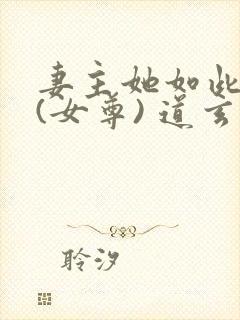 妻主她如此
(女尊) 道玄
聆汐